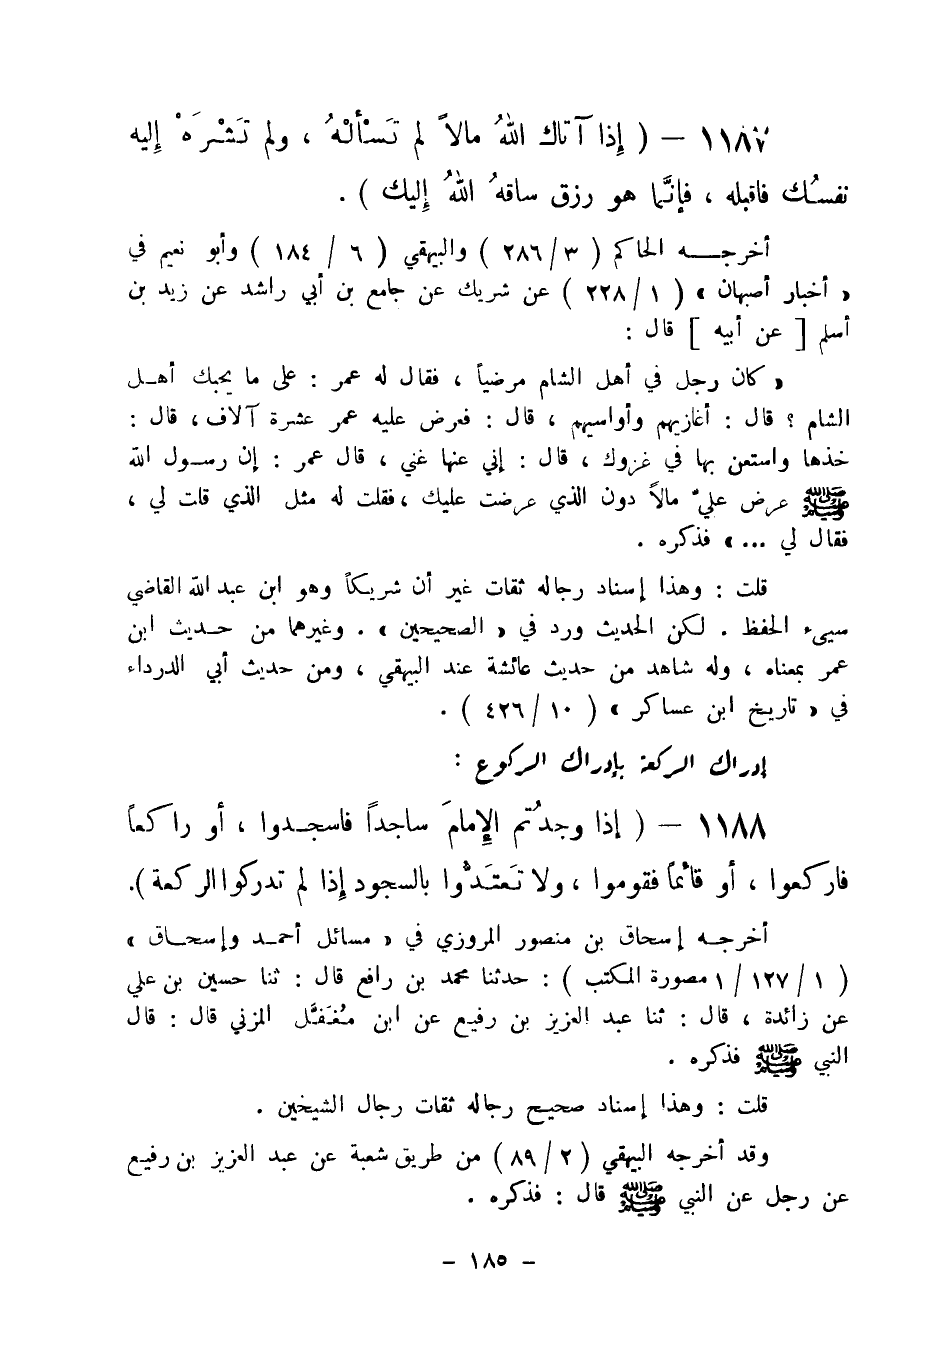 ١١٨٧ – ( إذا آتاك اللهُ مالاً لم تَسْألْهُ ، ولم تَشْرَهْ إليه
نفسُك فاقبله ، فإنَّما هو رزق ساقهُ اللهُ إليك ) .
أخرجـــه الحاكم ( ٣/ ٢٨٦ ) والبيهقي ( ٦ / ١٨٤ ) وأبو نعيم في
« أخبار أصبهان » ( ١/ ٢٢٨ ) عن شريك عن جامع بن أبي راشد عن زيد بن
أسلم [ عن أبيه ] قال :
« كان رجل في أهل الشام مرضياً ، فقال له عمر : على ما يحبك أهـل
الشام ؟ قال : أغازيهم وأواسيهم ، قال : فعرض عليه عمر عشرة آلاف ، قال :
خذها واستعن بها في غزوك ، قال : إني عنها غني ، قال عمر : إن رسـول الله
ﷺ عرض عليّ مالاً دون الذي عرضت عليك ، فقلت له مثل الذي قلت لي ،
فقال لي ... » فذكره .
قلت : وهذا إسناد رجاله ثقات غير أن شريكاً وهو ابن عبد الله القاضي
سيىء الحفظ . لكن الحديث ورد في « الصحيحين » . وغيرهما من حـديث ابن
عمر بمعناه ، وله شاهد من حديث عائشة عند البيهقي ، ومن حديث أبي الدرداء
في « تاريخ ابن عساكر » ( ١٠/ ٤٢٦ ) .
إدراك الركعة بإدراك الركوع :
١١٨٨ – ( إذا وجدتُم الإمامَ ساجداً فاسجـدوا ، أو راكعاً
فاركعوا ، أو قائماً فقوموا ، ولا تَعتَدُّوا بالسجود إذا لم تدركوا الركعة ).
أخرجـه إسحاق بن منصور المروزي في « مسائل أحمـد وإسحـاق »
( ١/ ١٢٧/ ١ مصورة المكتب ) : حدثنا محمد بن رافع قال : ثنا حسين بن علي
عن زائدة ، قال : ثنا عبد العزيز بن رفيع عن ابن مُغَفَّل المزني قال : قال
النبي ﷺ فذكره .
قلت : وهذا إسناد صحيح رجاله ثقات رجال الشيخين .
وقد أخرجه البيهقي ( ٢/ ٨٩ ) من طريق شعبة عن عبد العزيز بن رفيع
عن رجل عن النبي ﷺ قال : فذكره .
– ١٨٥ –